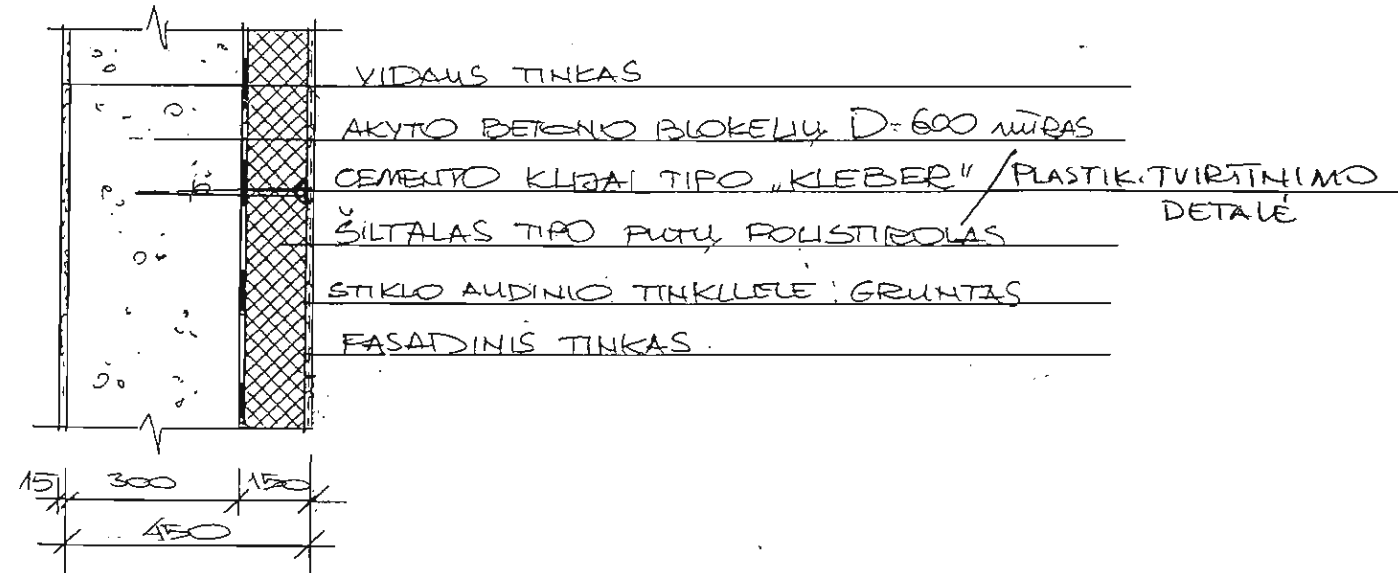 VIDAUS TINKAS
AKYTO BETONO BLOKELIŲ D=600 MŪRAS
CEMENTO KLIJAI TIPO „KLEBER" / PLASTIK. TVIRTINIMO
DETALĖ
ŠILTALAS TIPO PUTŲ POLISTIROLAS
STIKLO AUDINIO TINKLLELĖ; GRUNTAS
FASADINIS TINKAS.
15 300 150
450